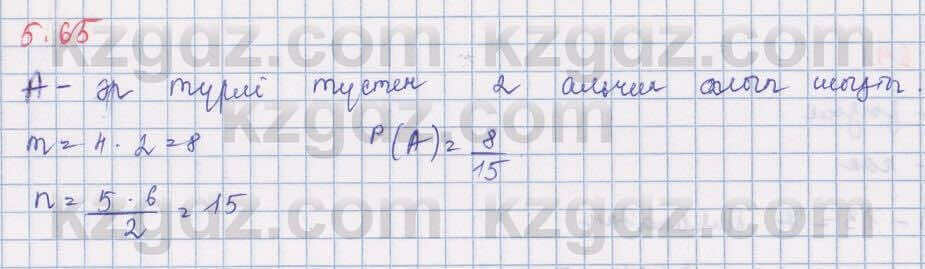 5.65
A - әр түрлі түстен 2 алып шығу.
m = 4 · 2 = 8 P(A) = 8/15
n = 5 · 6 / 2 = 15
kzgdz.com kzgdz.com
kzgdz.com
kzgdz.com kzgdz.com